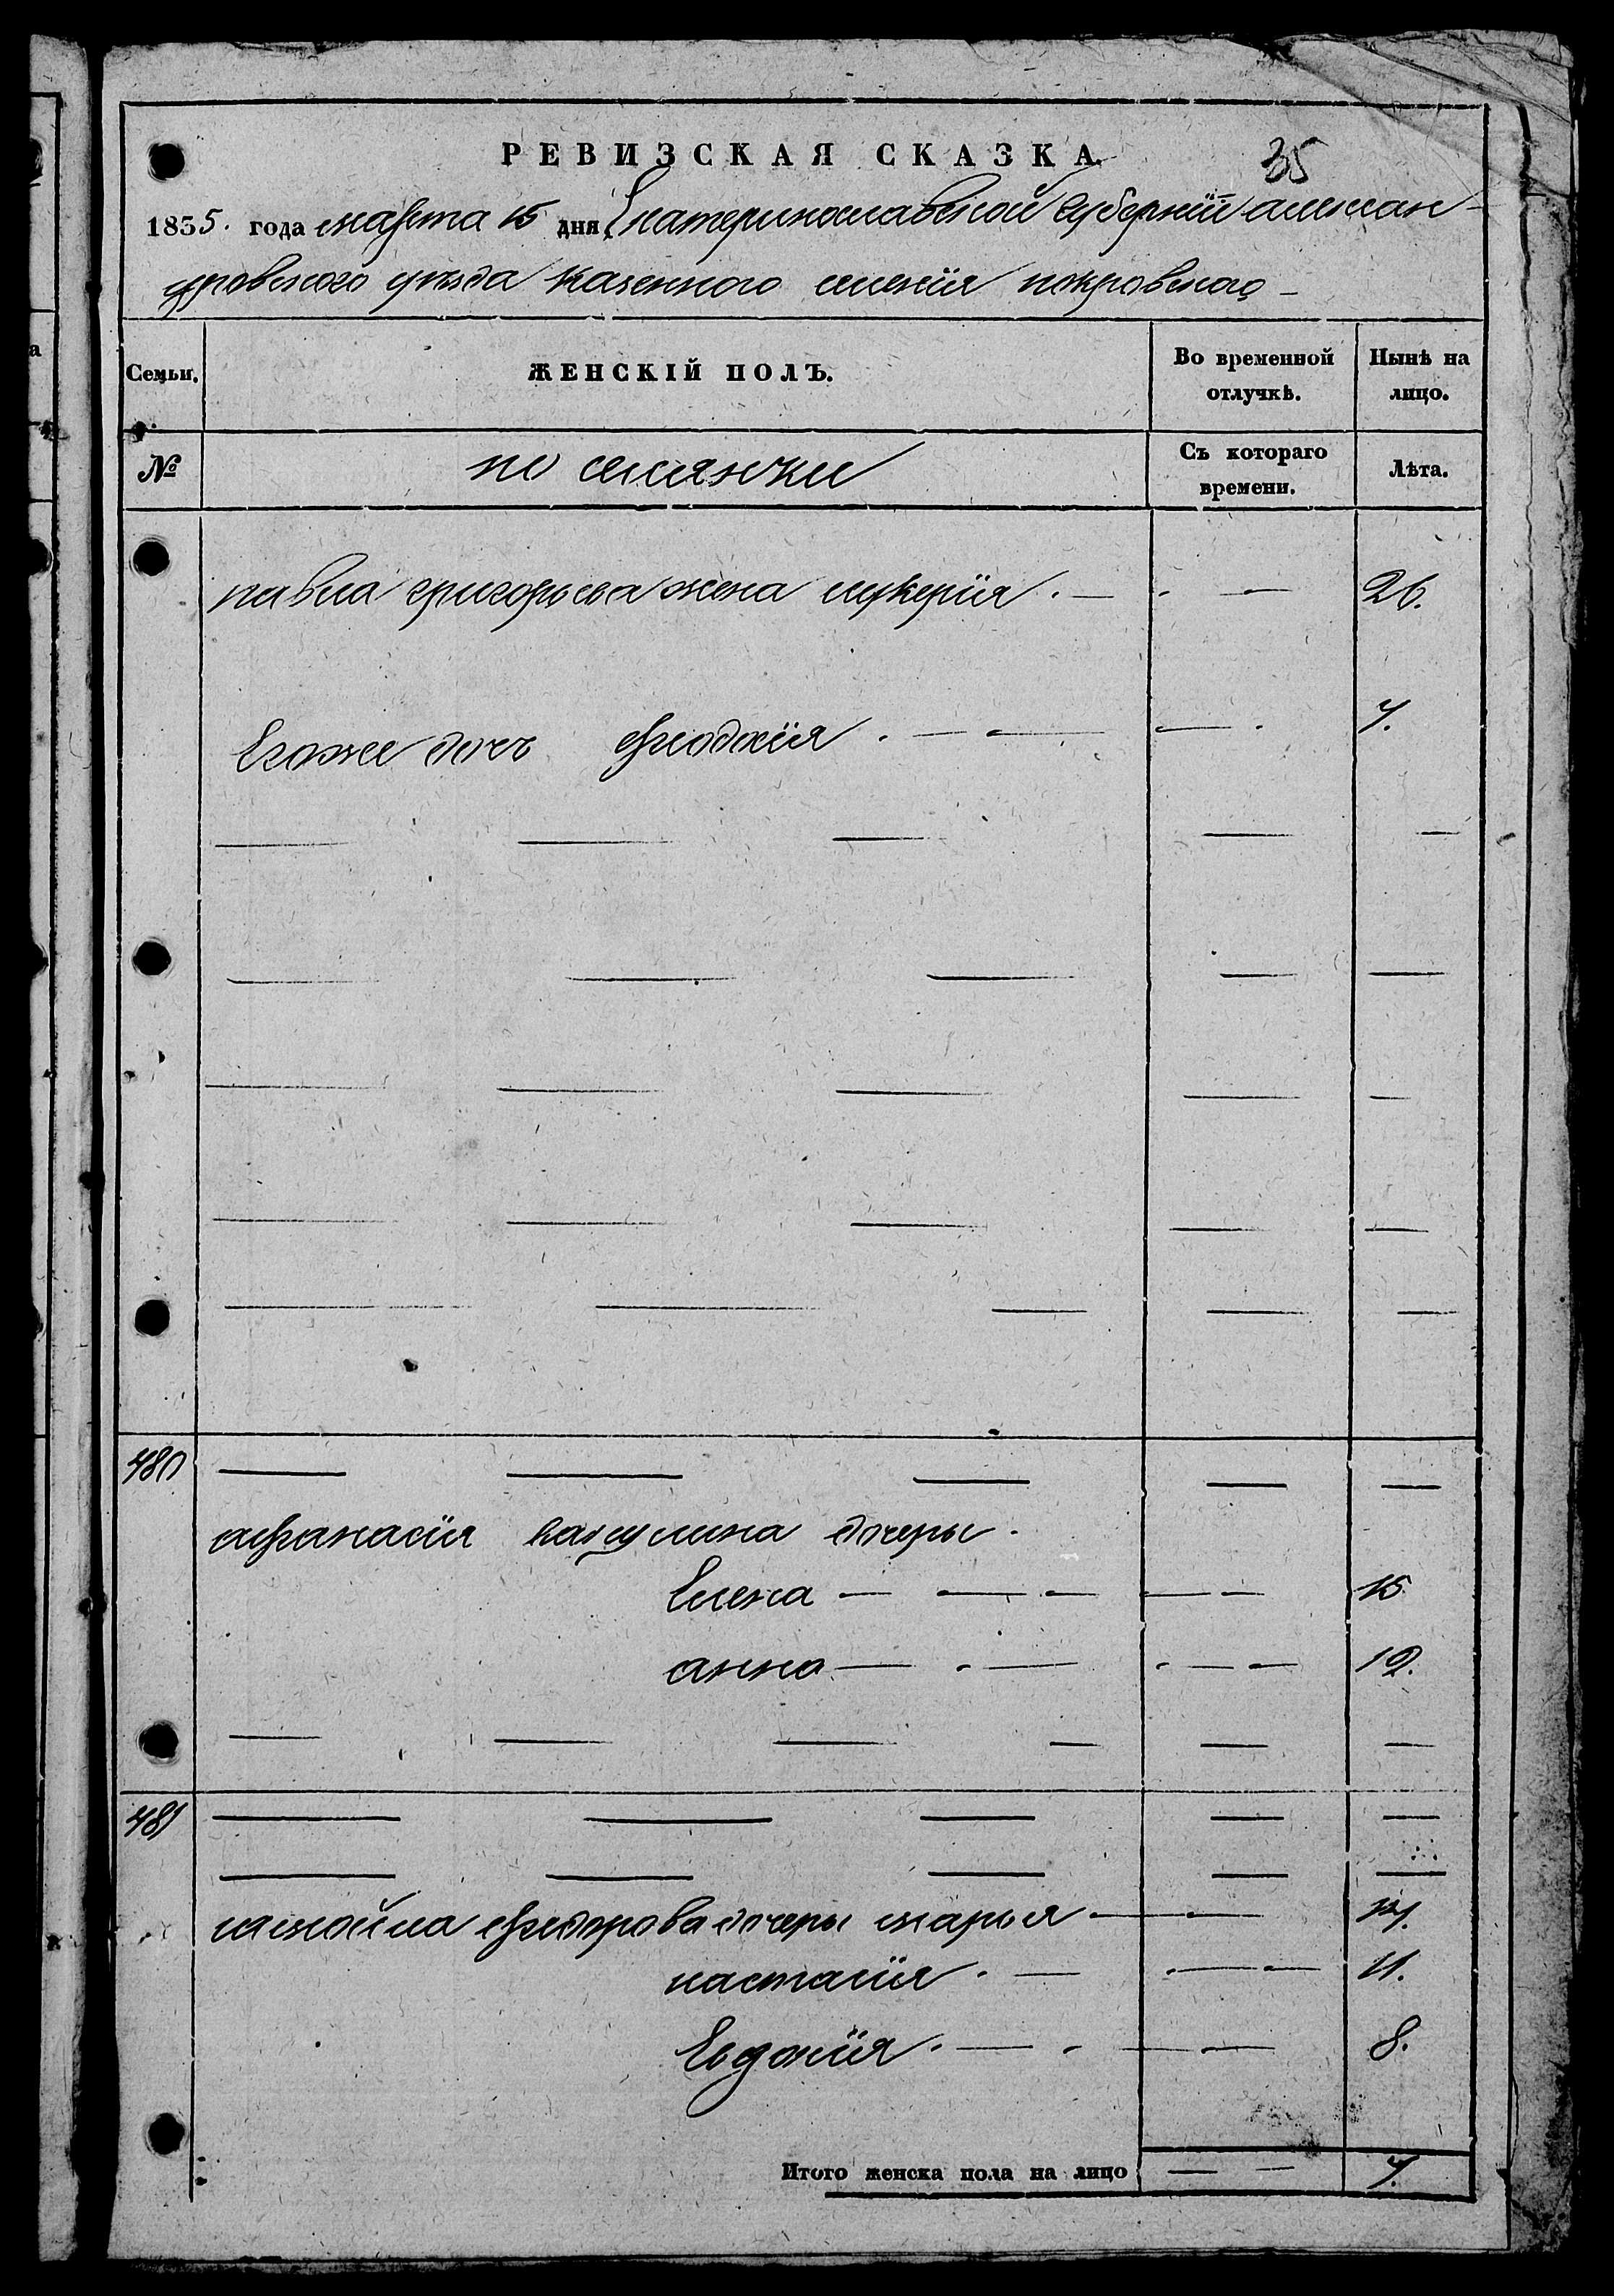 РЕВИЗСКАЯ СКАЗКА.
35
1835. года марта 15 дня Екатеринославской губернїи алексан-
дровского уезда казенного селенїя покровского
Семьи.
ЖЕНСКІЙ ПОЛЪ.
Во временной отлучкѣ.
Нынѣ на лицо.
№
поселянки
Съ котораго времени.
Лѣта.
павла григорьева жена лукерїя . — . — 26.
Егоже дочь феодосїя . — — — . 7.
480
афанасїя дочеры .
Елена — — — — — 15
анна — . — . — — 12.
481
самойла федорова дочеры марья — — 14.
настасїя . — . — — 11.
Евдокїя . — . — — 8.
Итого женска пола на лицо — — 7.